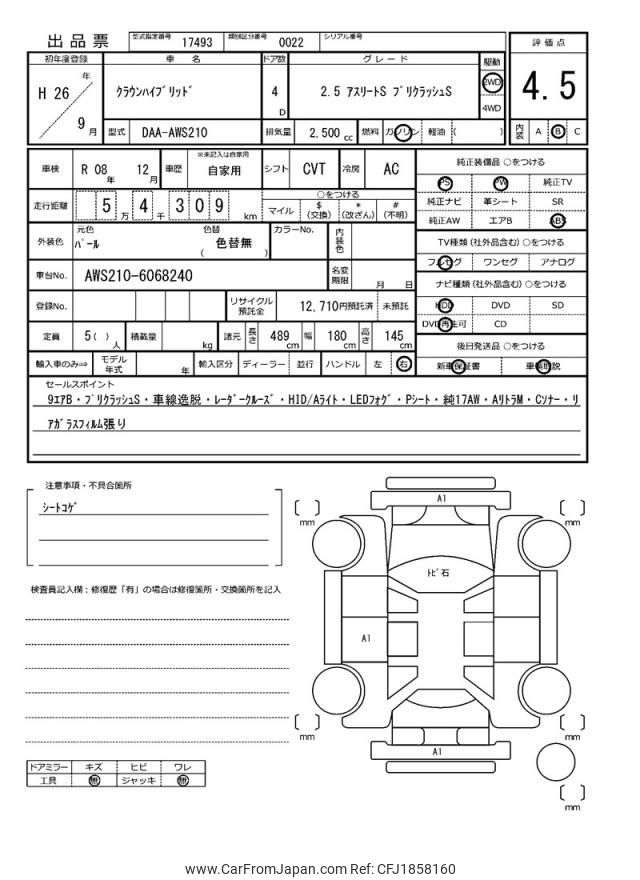 出品票 型式指定番号 17493 類別区分番号 0022 シリアル番号
評価点
4.5
内装 A B C
初年度登録 車名 ドア数 グレード 駆動
H 26 年 9 月
クラウンハイブリッド 4 D 2.5 アスリートS ブリクラッシュS 2WD 4WD
型式 DAA-AWS210 排気量 2,500 cc 燃料 ガソリン 軽油 ( )
車検 R 08 年 12 月 車歴 ※未記入は自家用 自家用 シフト CVT 冷房 AC
走行距離 5 万 4 千 3 0 9 km
○をつける
マイル $ (交換) * (改ざん) # (不明)
外装色 元色 パール 色替 ( 色替無 ) カラーNo. 内装色
車台No. AWS210-6068240 名変期限 月 日
登録No. リサイクル預託金 12,710円預託済 未預託
定員 5( ) 人 積載量 kg 諸元 長さ 489 cm 幅 180 cm 高さ 145 cm
輸入車のみ⇒ モデル年式 年 輸入区分 ディーラー 並行 ハンドル 左 右
純正装備品 ○をつける
PS PW 純正TV
純正ナビ 革シート SR
純正AW エアB ABS
TV種類 (社外品含む) ○をつける
フルセグ ワンセグ アナログ
ナビ種類 (社外品含む) ○をつける
HDD DVD SD
DVD再生可 CD
後日発送品 ○をつける
新車保証書 車輌取説
セールスポイント
9エアB・プリクラッシュS・車線逸脱・レーダークルーズ・HID/Aライト・LEDフォグ・Pシート・純17AW・AリトラM・Cソナー・リ
アガラスフィルム張り
注意事項・不具合箇所
シートコゲ
検査員記入欄：修復歴「有」の場合は修復箇所・交換箇所を記入
ドアミラー キズ ヒビ ワレ
工具 無 ジャッキ 無
A1
[ ] mm
[ ] mm
トビ石
A1
[ ] mm
[ ] mm
A1
[ ] mm
www.CarFromJapan.com Ref: CFJ1858160